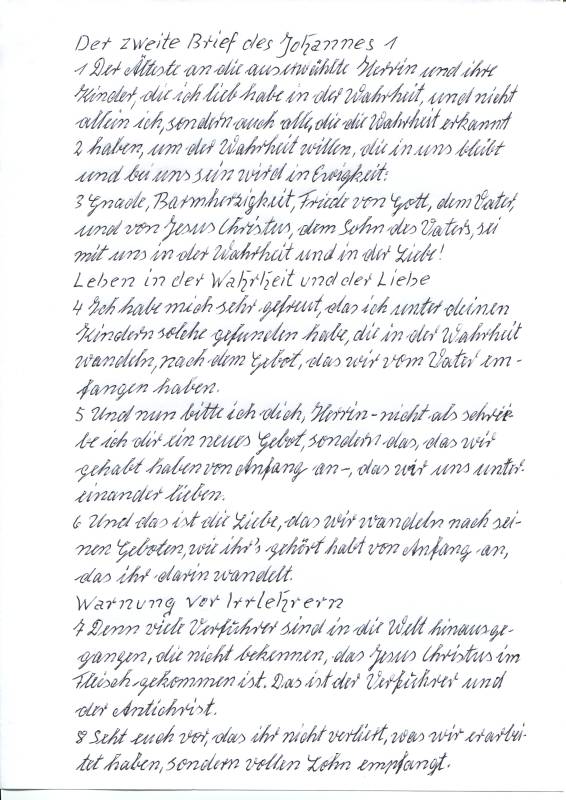 Der zweite Brief des Johannes 1
1 Der Älteste an die auserwählte Herrin und ihre
Kinder, die ich lieb habe in der Wahrheit, und nicht
allein ich, sondern auch alle, die die Wahrheit erkannt
2 haben, um der Wahrheit willen, die in uns bleibt
und bei uns sein wird in Ewigkeit:
3 Gnade, Barmherzigkeit, Friede von Gott, dem Vater,
und von Jesus Christus, dem Sohn des Vaters, sei
mit uns in der Wahrheit und in der Liebe!
Leben in der Wahrheit und der Liebe
4 Ich habe mich sehr gefreut, das ich unter deinen
Kindern solche gefunden habe, die in der Wahrheit
wandeln, nach dem Gebot, das wir vom Vater em-
fangen haben.
5 Und nun bitte ich dich, Herrin - nicht als schrie-
be ich dir ein neues Gebot, sondern das, das wir
gehabt haben von Anfang an -, das wir uns unter-
einander lieben.
6 Und das ist die Liebe, das wir wandeln nach sei-
nen Geboten, wie ihr's gehört habt von Anfang an,
das ihr darin wandelt.
Warnung vor Irrlehrern
7 Denn viele Verführer sind in die Welt hinausge-
gangen, die nicht bekennen, das Jesus Christus im
Fleisch gekommen ist. Das ist der Verführer und
der Antichrist.
8 Seht euch vor, das ihr nicht verliert, was wir erarbei-
tet haben, sondern vollen Lohn empfangt.